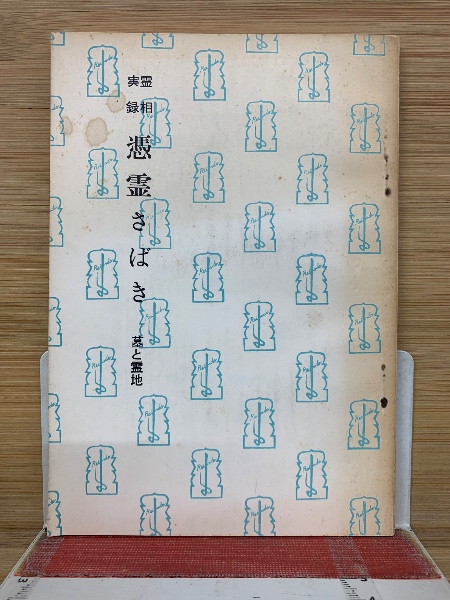 霊相
実録
憑霊さばき
墓と霊地